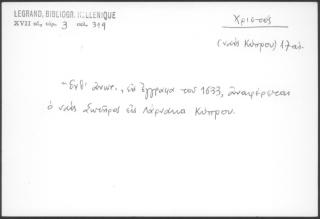 LEGRAND, BIBLIOGR. HELLENIQUE
XVII αἰ, τόμ. 3 σελ. 319
Χριστός
(ναός Κύπρου) 17 αἰ.
"Ἔνθ' ἀνωτ., εἰς ἔγγραφα τοῦ 1633, ἀναφέρεται
ὁ ναός Σωτῆρος εἰς Λάρνακα Κύπρου.